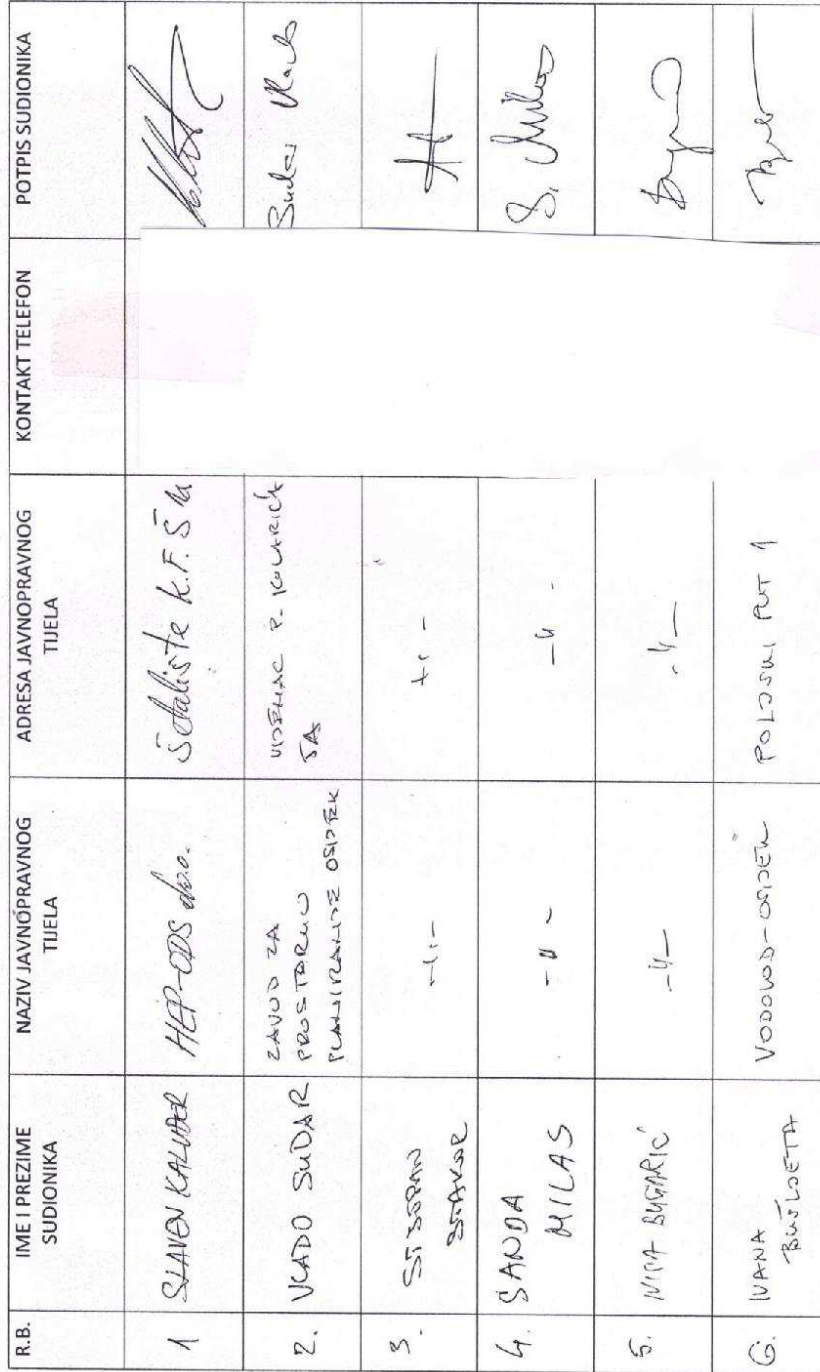 R.B. IME I PREZIME SUDIONIKA NAZIV JAVNOPRAVNOG TIJELA ADRESA JAVNOPRAVNOG TIJELA KONTAKT TELEFON POTPIS SUDIONIKA
1 SLAVEN KALUĐER HEP-ODS d.o.o. Šetalište K.F.Š
2. VLADO SUDAR ZAVOD ZA PROSTORNO PLANIRANJE OSIJEK VIJENAC P. KOLARIĆA 5A Sudar Vlado
3. STJEPAN -"- -"-
4. SANDA MILAS -"- -"- S. Milas
5. BUGARIĆ -"- -"-
6. IVANA BUŠLJETA VODOVOD-OSIJEK POLJSKI PUT 1